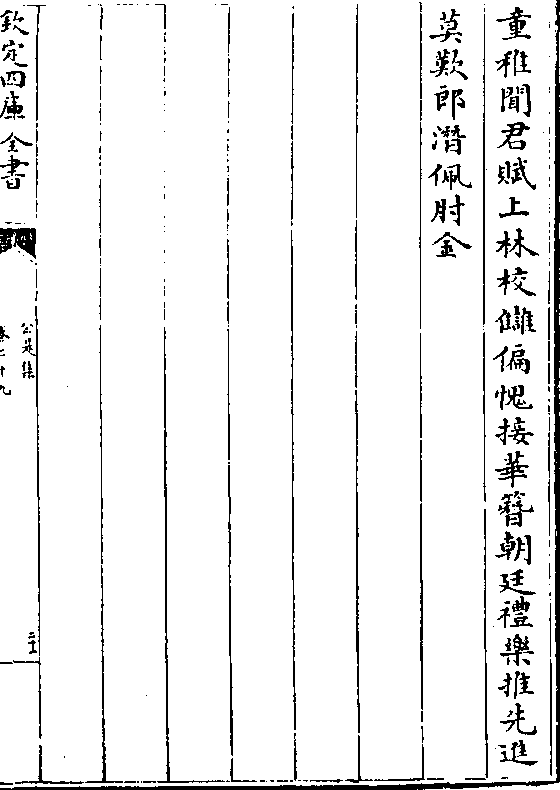 童稚聞君賦上林校讎偏愧接華簪朝廷禮樂推先進
莫歎郎潛佩肘金
欽定四庫全書
公是集